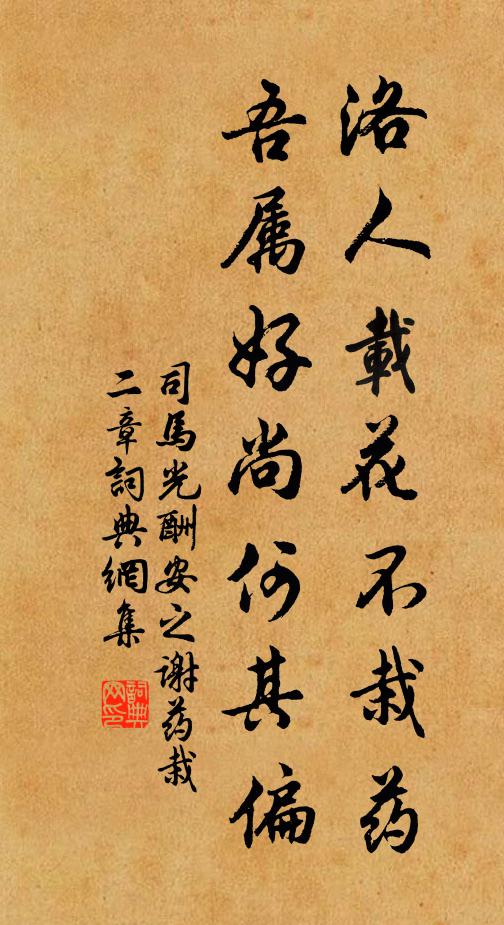 洛人載花不栽药
吾属好尚何其偏
司馬光酬安之谢药栽
二章詞典網集
詞典网印